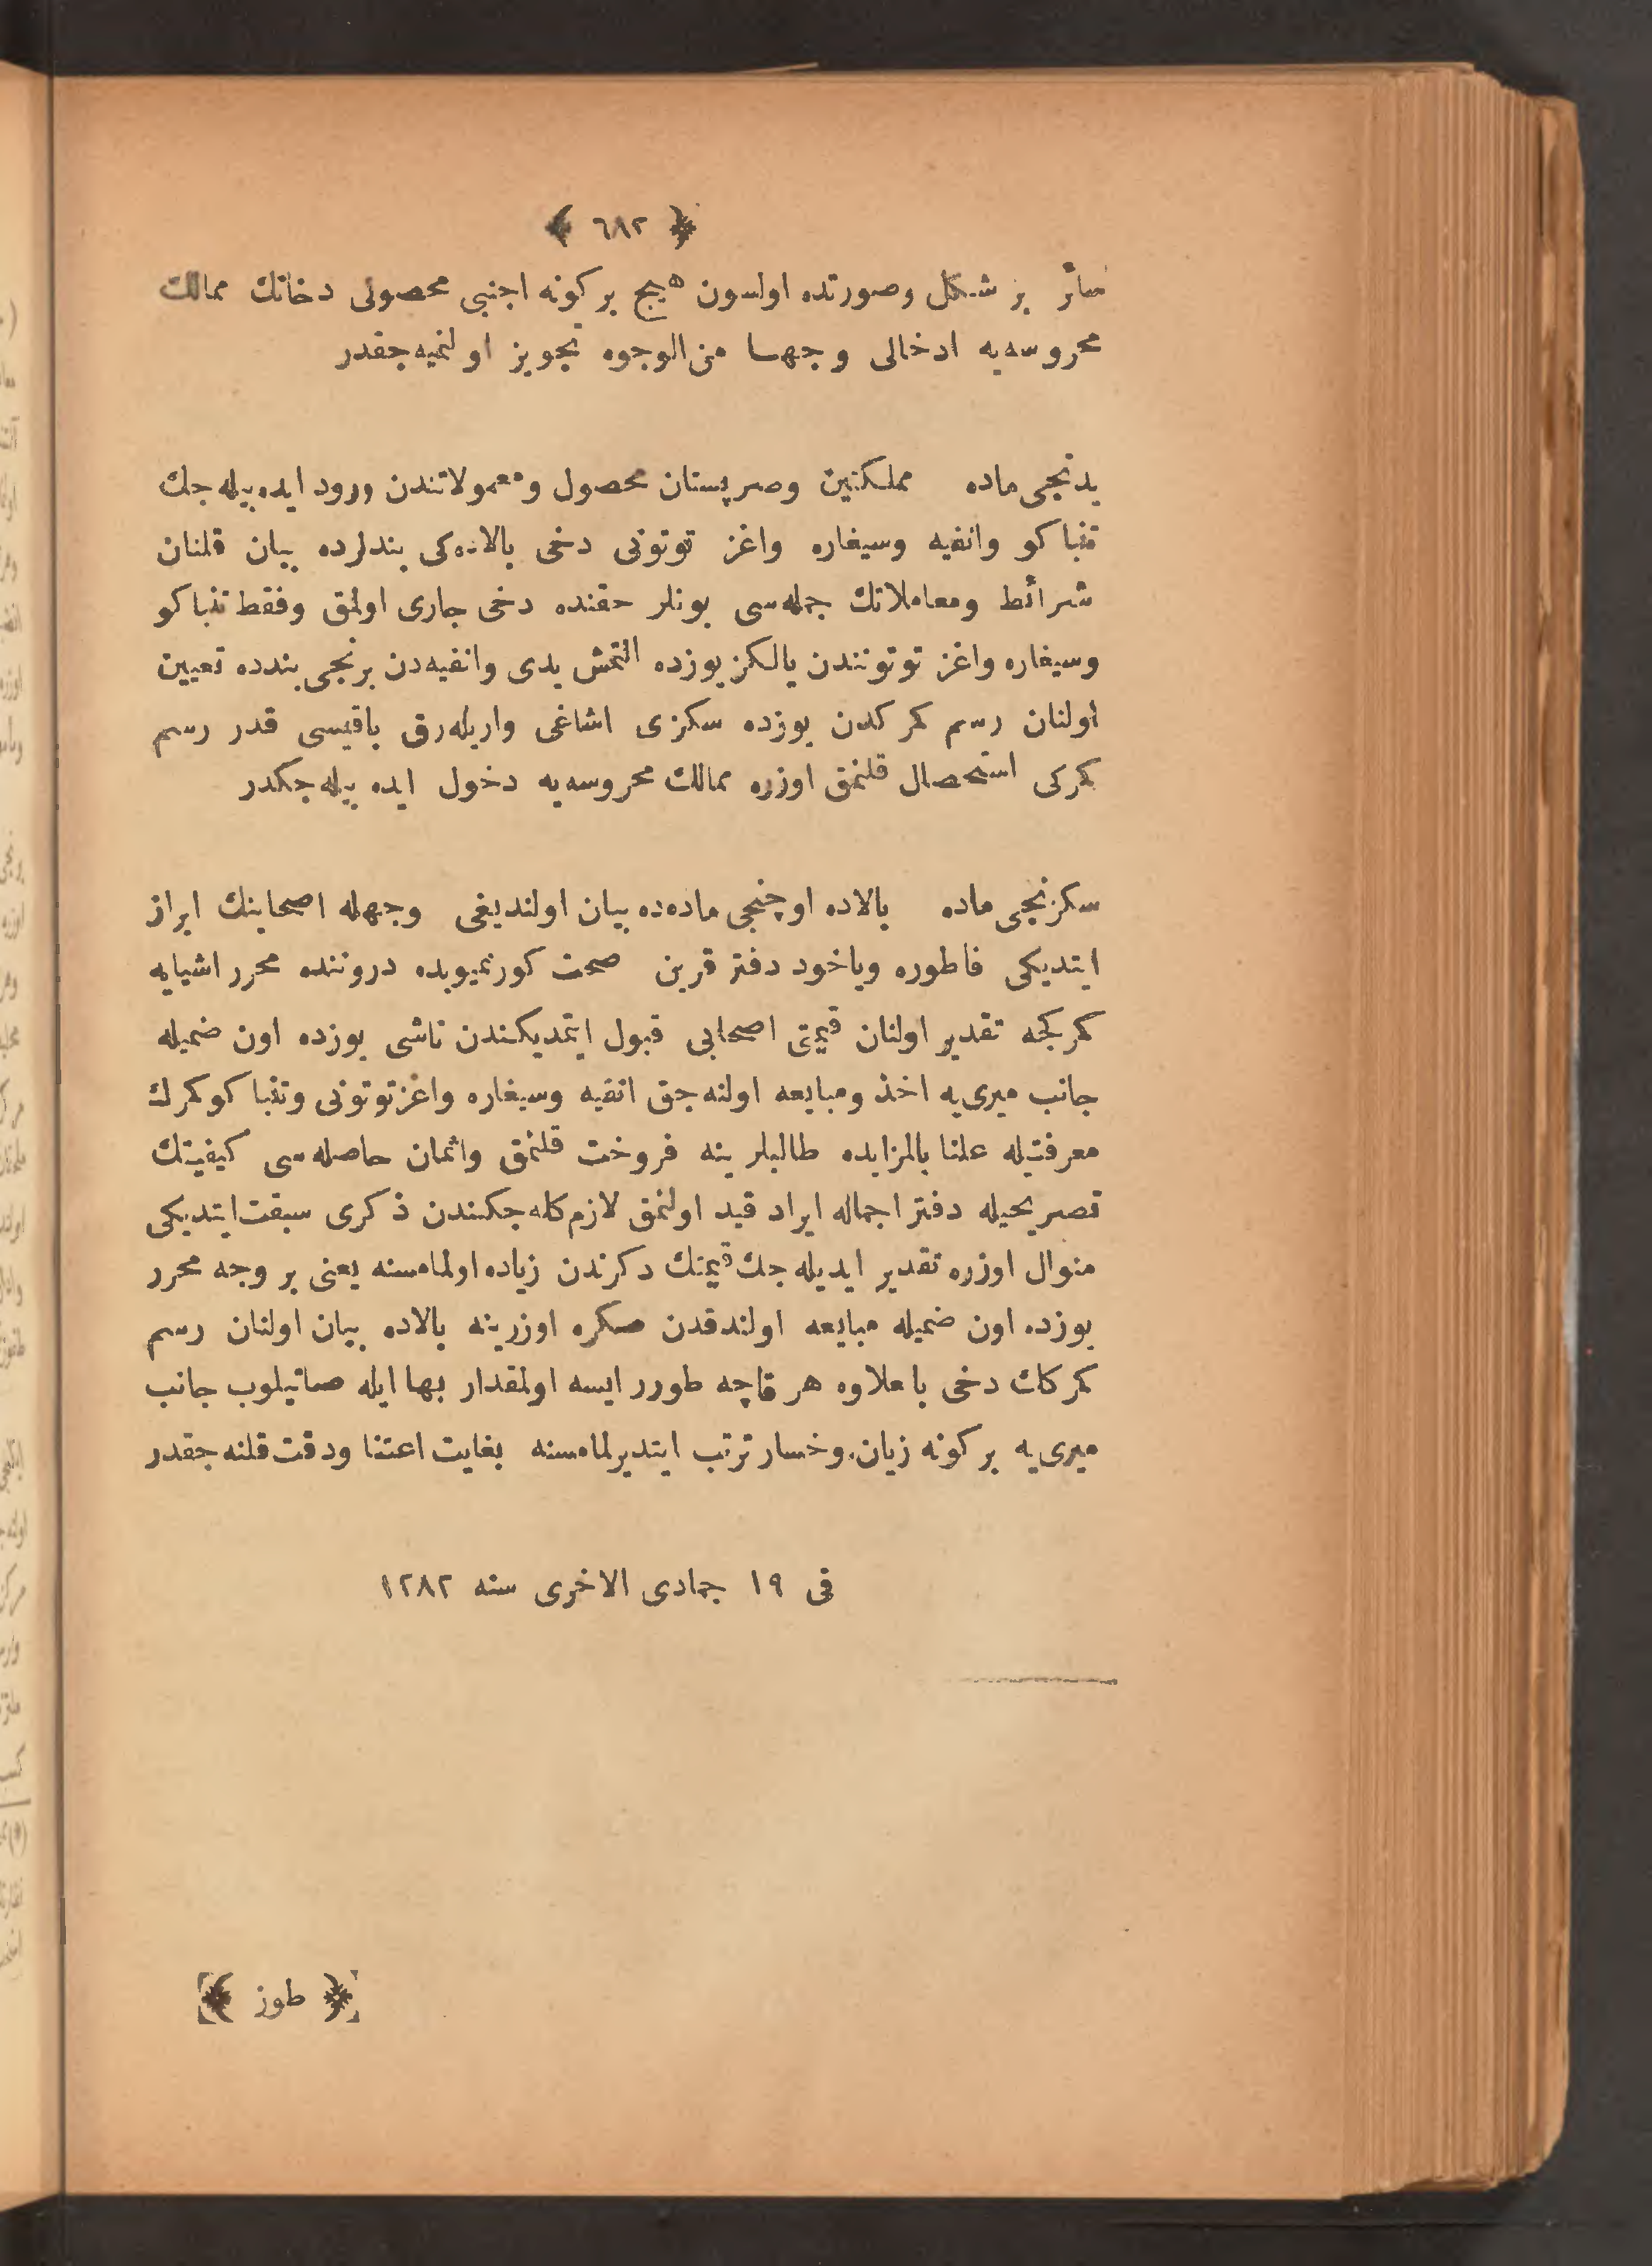 ﴿ ٦٨٢ ﴾
سائر بر شكل وصورتده اولسون هيچ بر كونه اجنبى محصولى دخانك ممالك
محروسه‌يه ادخالى وجها من‌الوجوه تجويز اولنميه‌جقدر
يدنجى ماده مملكتين وصربستان محصول ومعمولاتندن ورود ايده‌بيله‌جك
تنباكو وانفيه وسيغاره واغز توتونى دخى بالاده‌كى بندلرده بيان قلنان
شرائط ومعاملاتك جمله‌سى بونلر حقنده دخى جارى اولمق وفقط تنباكو
وسيغاره واغز توتونندن يالكز يوزده التمش يدى وانفيه‌دن برنجى بندده تعيين
اولنان رسم كمركدن يوزده سكزى اشاغى واريله‌رق باقيسى قدر رسم
كمركى استحصال قلنمق اوزره ممالك محروسه‌يه دخول ايده بيله‌جكدر
سكزنجى ماده بالاده اوچنجى ماده‌ده بيان اولنديغى وجهله اصحابنك ابراز
ايتديكى فاطوره وياخود دفتر قرين صحت كورنميوبده دروننده محرر اشيايه
كمركجه تقدير اولنان قيمتى اصحابى قبول ايتمديكندن ناشى يوزده اون ضميله
جانب ميرى‌يه اخذ ومبايعه اولنه‌جق انفيه وسيغاره واغز توتونى وتنباكو كمرك
معرفتيله علنا بالمزايده طالبلرينه فروخت قلنمق واثمان حاصله‌سى كيفيتك
تصريحيله دفتر اجماله ايراد قيد اولنمق لازم كله‌جكندن ذكرى سبقت ايتديكى
منوال اوزره تقدير ايديله‌جك قيمتك دكرندن زياده اولمامسنه يعنى بر وجه محرر
يوزده اون ضميله مبايعه اولندقدن صكره اوزرينه بالاده بيان اولنان رسم
كمركات دخى باعلاوه هر قاچه طورر ايسه اولمقدار بها ايله صاتيلوب جانب
ميرى‌يه بر كونه زيان وخسار ترتب ايتديرلمامسنه بغايت اعتنا ودقت قلنه‌جقدر
فى ١٩ جمادى الاخرى سنه ١٢٨٢
﴿ طوز ﴾